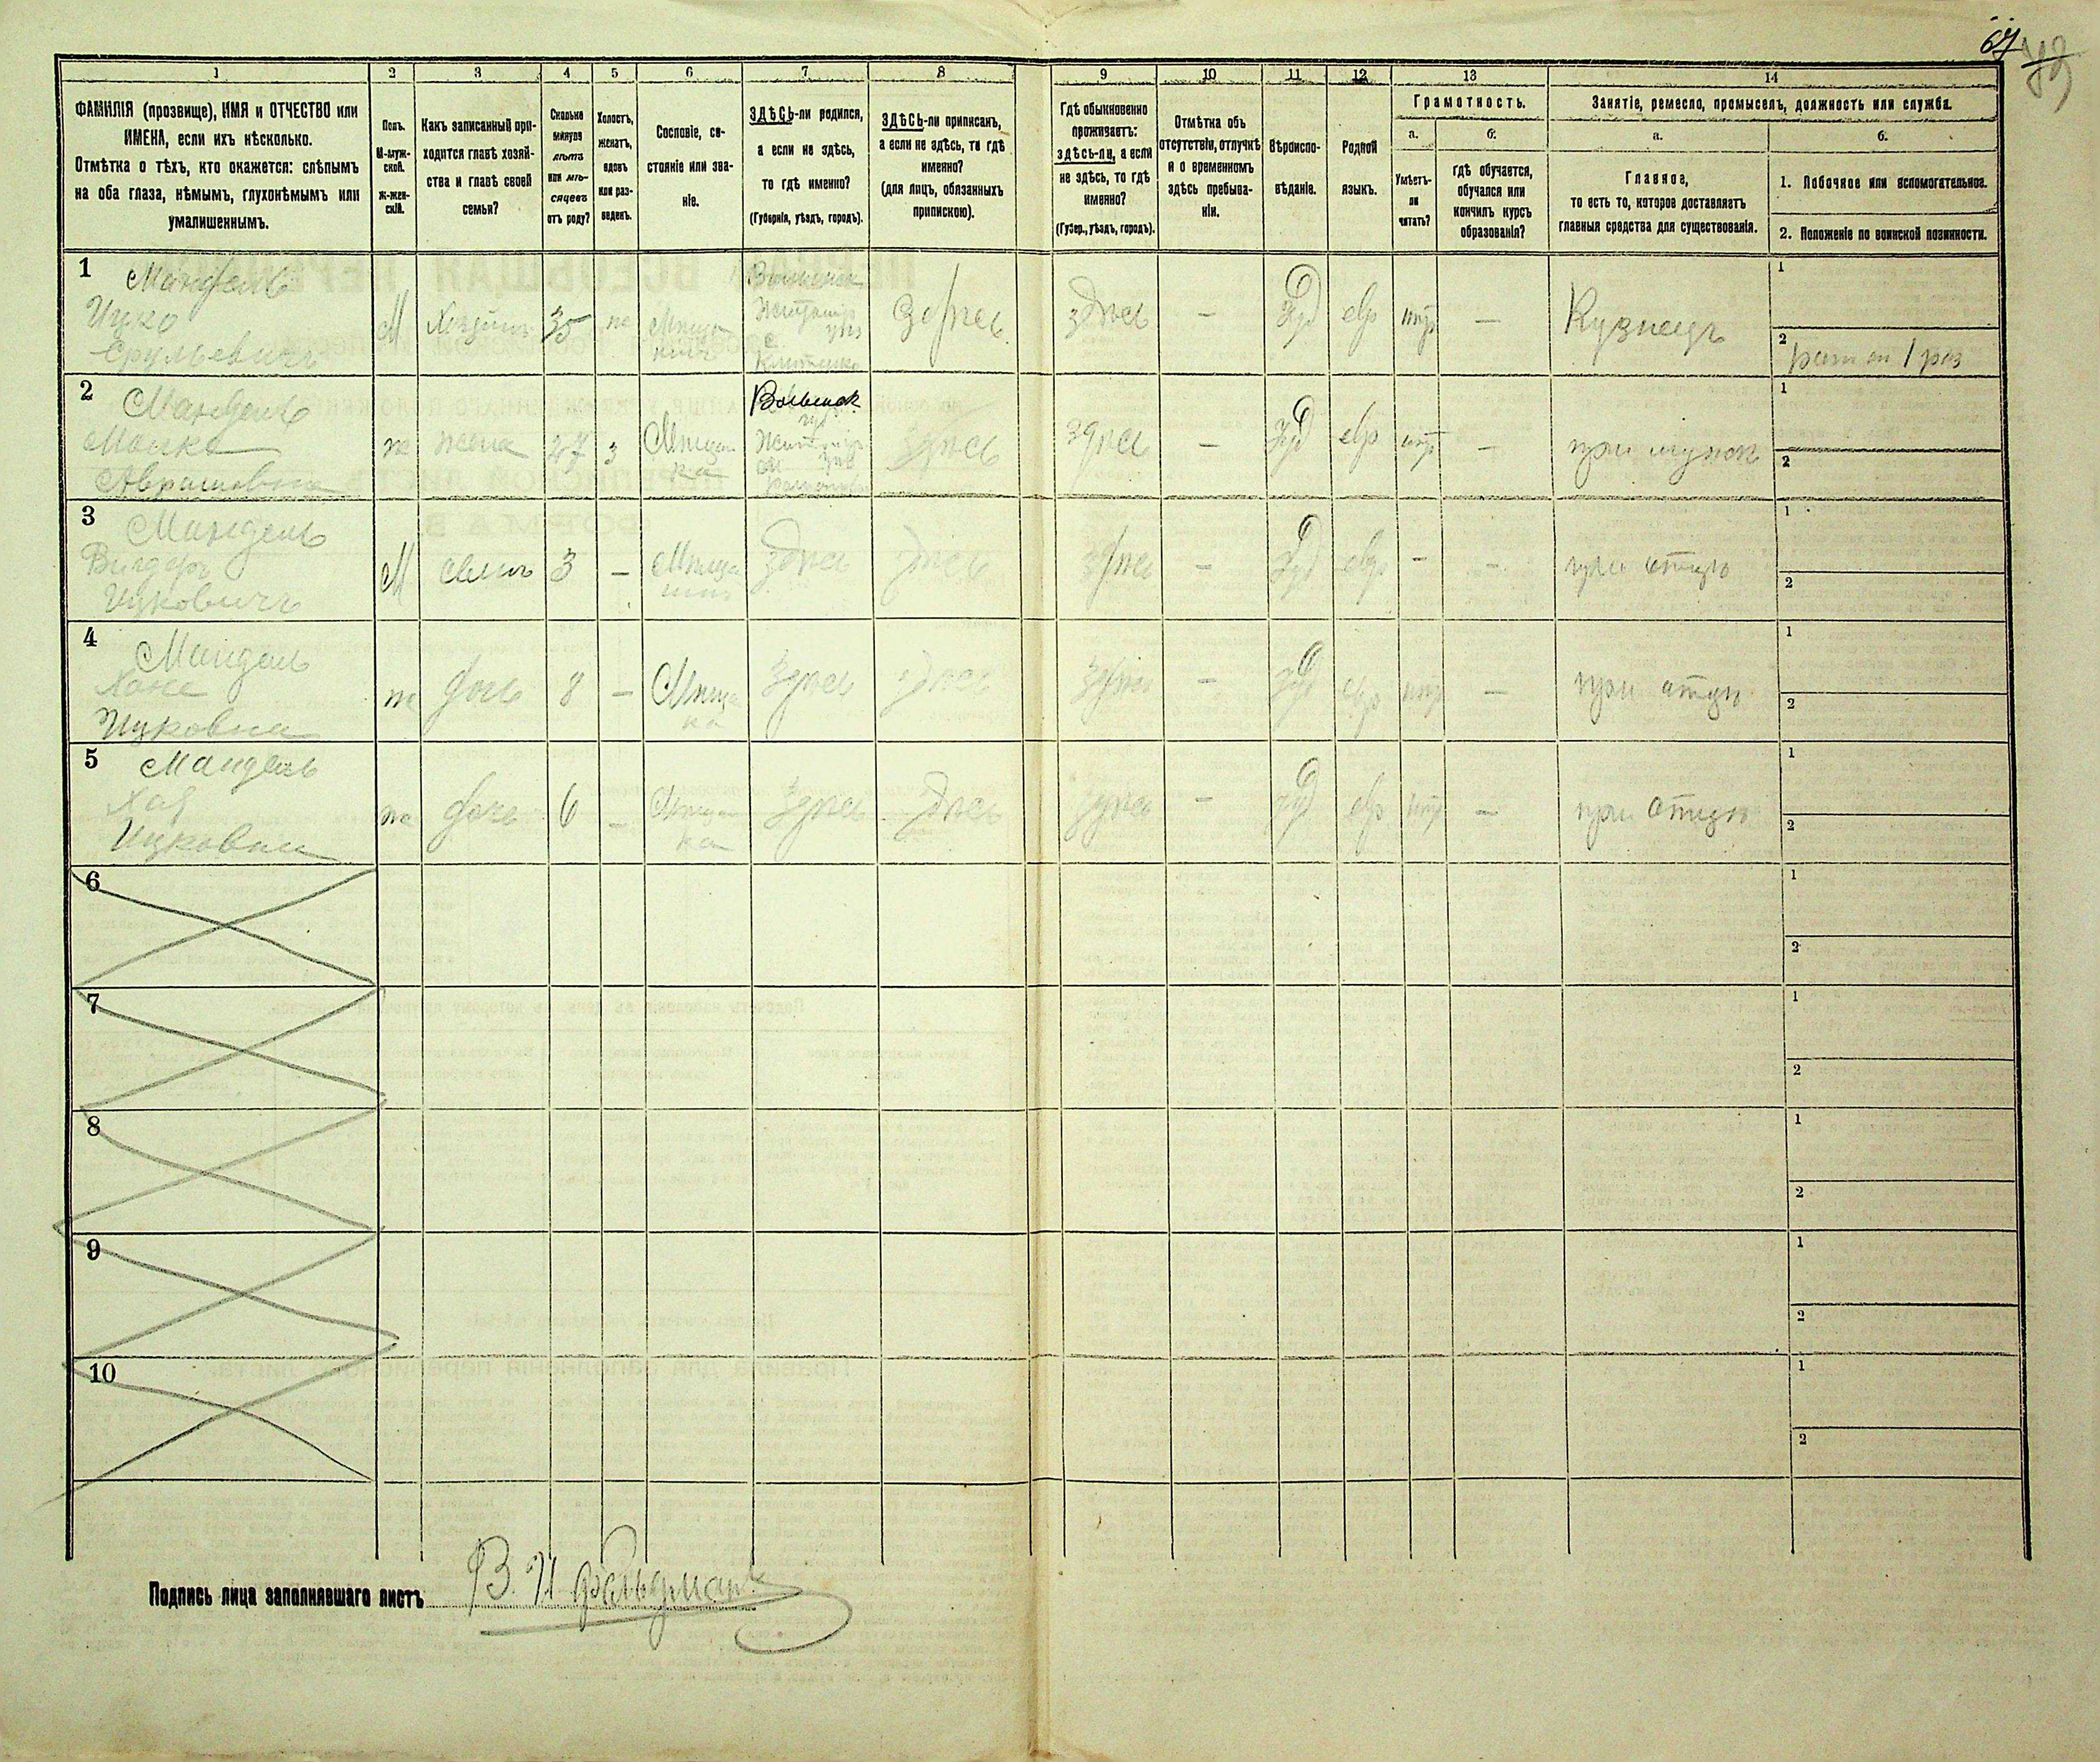 67
79
1
2
3
4
5
6
7
8
9
10
11
12
13
14
ФАМИЛІЯ (прозвище), ИМЯ и ОТЧЕСТВО или
ИМЕНА, если ихъ нѣсколько.
Отмѣтка о тѣхъ, кто окажется: слѣпымъ
на оба глаза, нѣмымъ, глухонѣмымъ или
умалишеннымъ.
Полъ.
М-муж-
ской.
Ж-жен-
скій.
Какъ записанный при-
ходится главѣ хозяй-
ства и главѣ своей
семьи?
Сколько
минуло
лѣтъ
или мѣ-
сяцевъ
отъ роду?
Холостъ,
женатъ,
вдовъ
или раз-
веденъ.
Сословіе, со-
стояніе или зва-
ніе.
ЗДѢСЬ-ли родился,
а если не здѣсь,
то гдѣ именно?
(Губернія, уѣздъ, городъ).
ЗДѢСЬ-ли приписанъ,
а если не здѣсь, то гдѣ
именно?
(для лицъ, обязанныхъ
припискою).
Гдѣ обыкновенно
проживаетъ:
здѣсь-ли, а если
не здѣсь, то гдѣ
именно?
(Губер., уѣздъ, городъ).
Отмѣтка объ
отсутствіи, отлучкѣ
и о временномъ
здѣсь пребыва-
ніи.
Вѣроиспо-
вѣданіе.
Родной
языкъ.
Грамотность.
а.
Умѣетъ-
ли
читать?
б.
гдѣ обучается,
обучался или
кончилъ курсъ
образованія?
Занятіе, ремесло, промыселъ, должность или служба.
а.
Главное,
то есть то, которое доставляетъ
главныя средства для существованія.
б.
1. Побочное или вспомогательное.
2. Положеніе по воинской повинности.
1
Мандель
Ицко
Срульевичъ
М
Хозяинъ
35
ж
Мѣща
нинъ
Волынск
Житомір
уѣз
с.
Здѣсь
здѣсь
—
Іуд
евр
—
Кузнецъ
1
2
1 раз
2
Мандель
Аврамовна
ж
жена
27
з
Мѣщан
ка
Волынск
губ
Житомір
уѣз
здѣсь
здѣсь
—
Іуд
евр
—
при мужѣ
1
2
3
Мандель
Вигдоръ
Ицковичъ
М
сынъ
3
—
Мѣща
нинъ
здѣсь
здѣсь
здѣсь
—
Іуд
евр
—
—
при отцѣ
1
2
4
Мандель
Ицковна
ж
дочь
8
—
Мѣща
ка
здѣсь
здѣсь
здѣсь
—
Іуд
евр
—
при отцѣ
1
2
5
Мандель
Хая
Ицковна
ж
дочь
6
—
Мѣщан
ка
здѣсь
здѣсь
здѣсь
—
Іуд
евр
—
при отцѣ
1
2
6
1
2
7
1
2
8
1
2
9
1
2
10
1
2
Подпись лица заполнявшаго листъ В. И. Фельдманъ